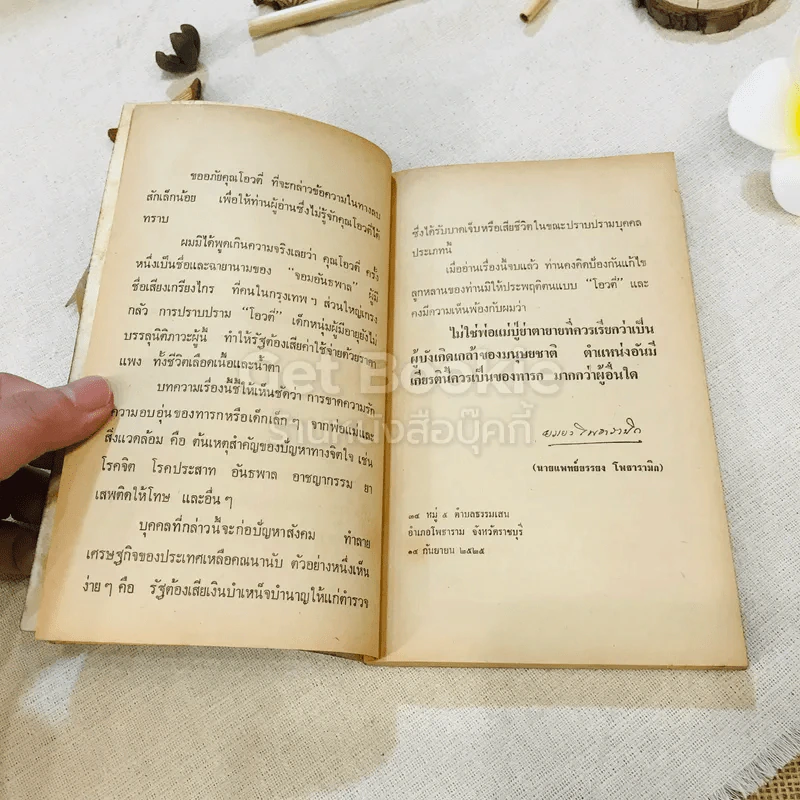 ขออภัยคุณโอวตี่ ที่จะกล่าวข้อความในทางลบ
สักเล็กน้อย เพื่อให้ท่านผู้อ่านซึ่งไม่รู้จักคุณโอวตี่ได้
ทราบ
ผมมิได้พูดเกินความจริงเลยว่า คุณโอวตี่ ครั้ง
หนึ่งเป็นชื่อและฉายานามของ “จอมอันธพาล” ผู้มี
ชื่อเสียงเกรียงไกร ที่คนในกรุงเทพฯ ส่วนใหญ่เกรง
กลัว การปราบปราม “โอวตี่” เด็กหนุ่มผู้มีอายุยังไม่
บรรลุนิติภาวะผู้นี้ ทำให้รัฐต้องเสียค่าใช้จ่ายด้วยราคา
แพง ทั้งชีวิตเลือดเนื้อและน้ำตา
บทความเรื่องนี้ชี้ให้เห็นชัดว่า การขาดความรัก
ความอบอุ่นของทารกหรือเด็กเล็กๆ จากพ่อแม่และ
สิ่งแวดล้อม คือ ต้นเหตุสำคัญของปัญหาทางจิตใจ เช่น
โรคจิต โรคประสาท อันธพาล อาชญากรรม ยา
เสพติดให้โทษ และอื่นๆ
บุคคลที่กล่าวนี้จะก่อปัญหาสังคม ทำลาย
เศรษฐกิจของประเทศเหลือคณานับ ตัวอย่างหนึ่งเห็น
ง่ายๆ คือ รัฐต้องเสียเงินบำเหน็จบำนาญให้แก่ตำรวจ
ซึ่งได้รับบาดเจ็บหรือเสียชีวิตในขณะปราบปรามบุคคล
ประเภทนี้
เมื่ออ่านเรื่องนี้จบแล้ว ท่านคงคิดป้องกันแก้ไข
ลูกหลานของท่านมิให้ประพฤติตนแบบ “โอวตี่” และ
คงมีความเห็นพ้องกับผมว่า
ไม่ใช่พ่อแม่ปู่ย่าตายายที่ควรเรียกว่าเป็น
ผู้บังเกิดเกล้าของมนุษยชาติ ตำแหน่งอันมี
เกียรตินี้ควรเป็นของทารก มากกว่าผู้อื่นใด
(นายแพทย์อรรยง โพธารามิก)
๓๔ หมู่ ๕ ตำบลธรรมเสน
อำเภอโพธาราม จังหวัดราชบุรี
๑๔ กันยายน ๒๕๒๕
Get Bookie
ร้านหนังสือบุ๊คกี้